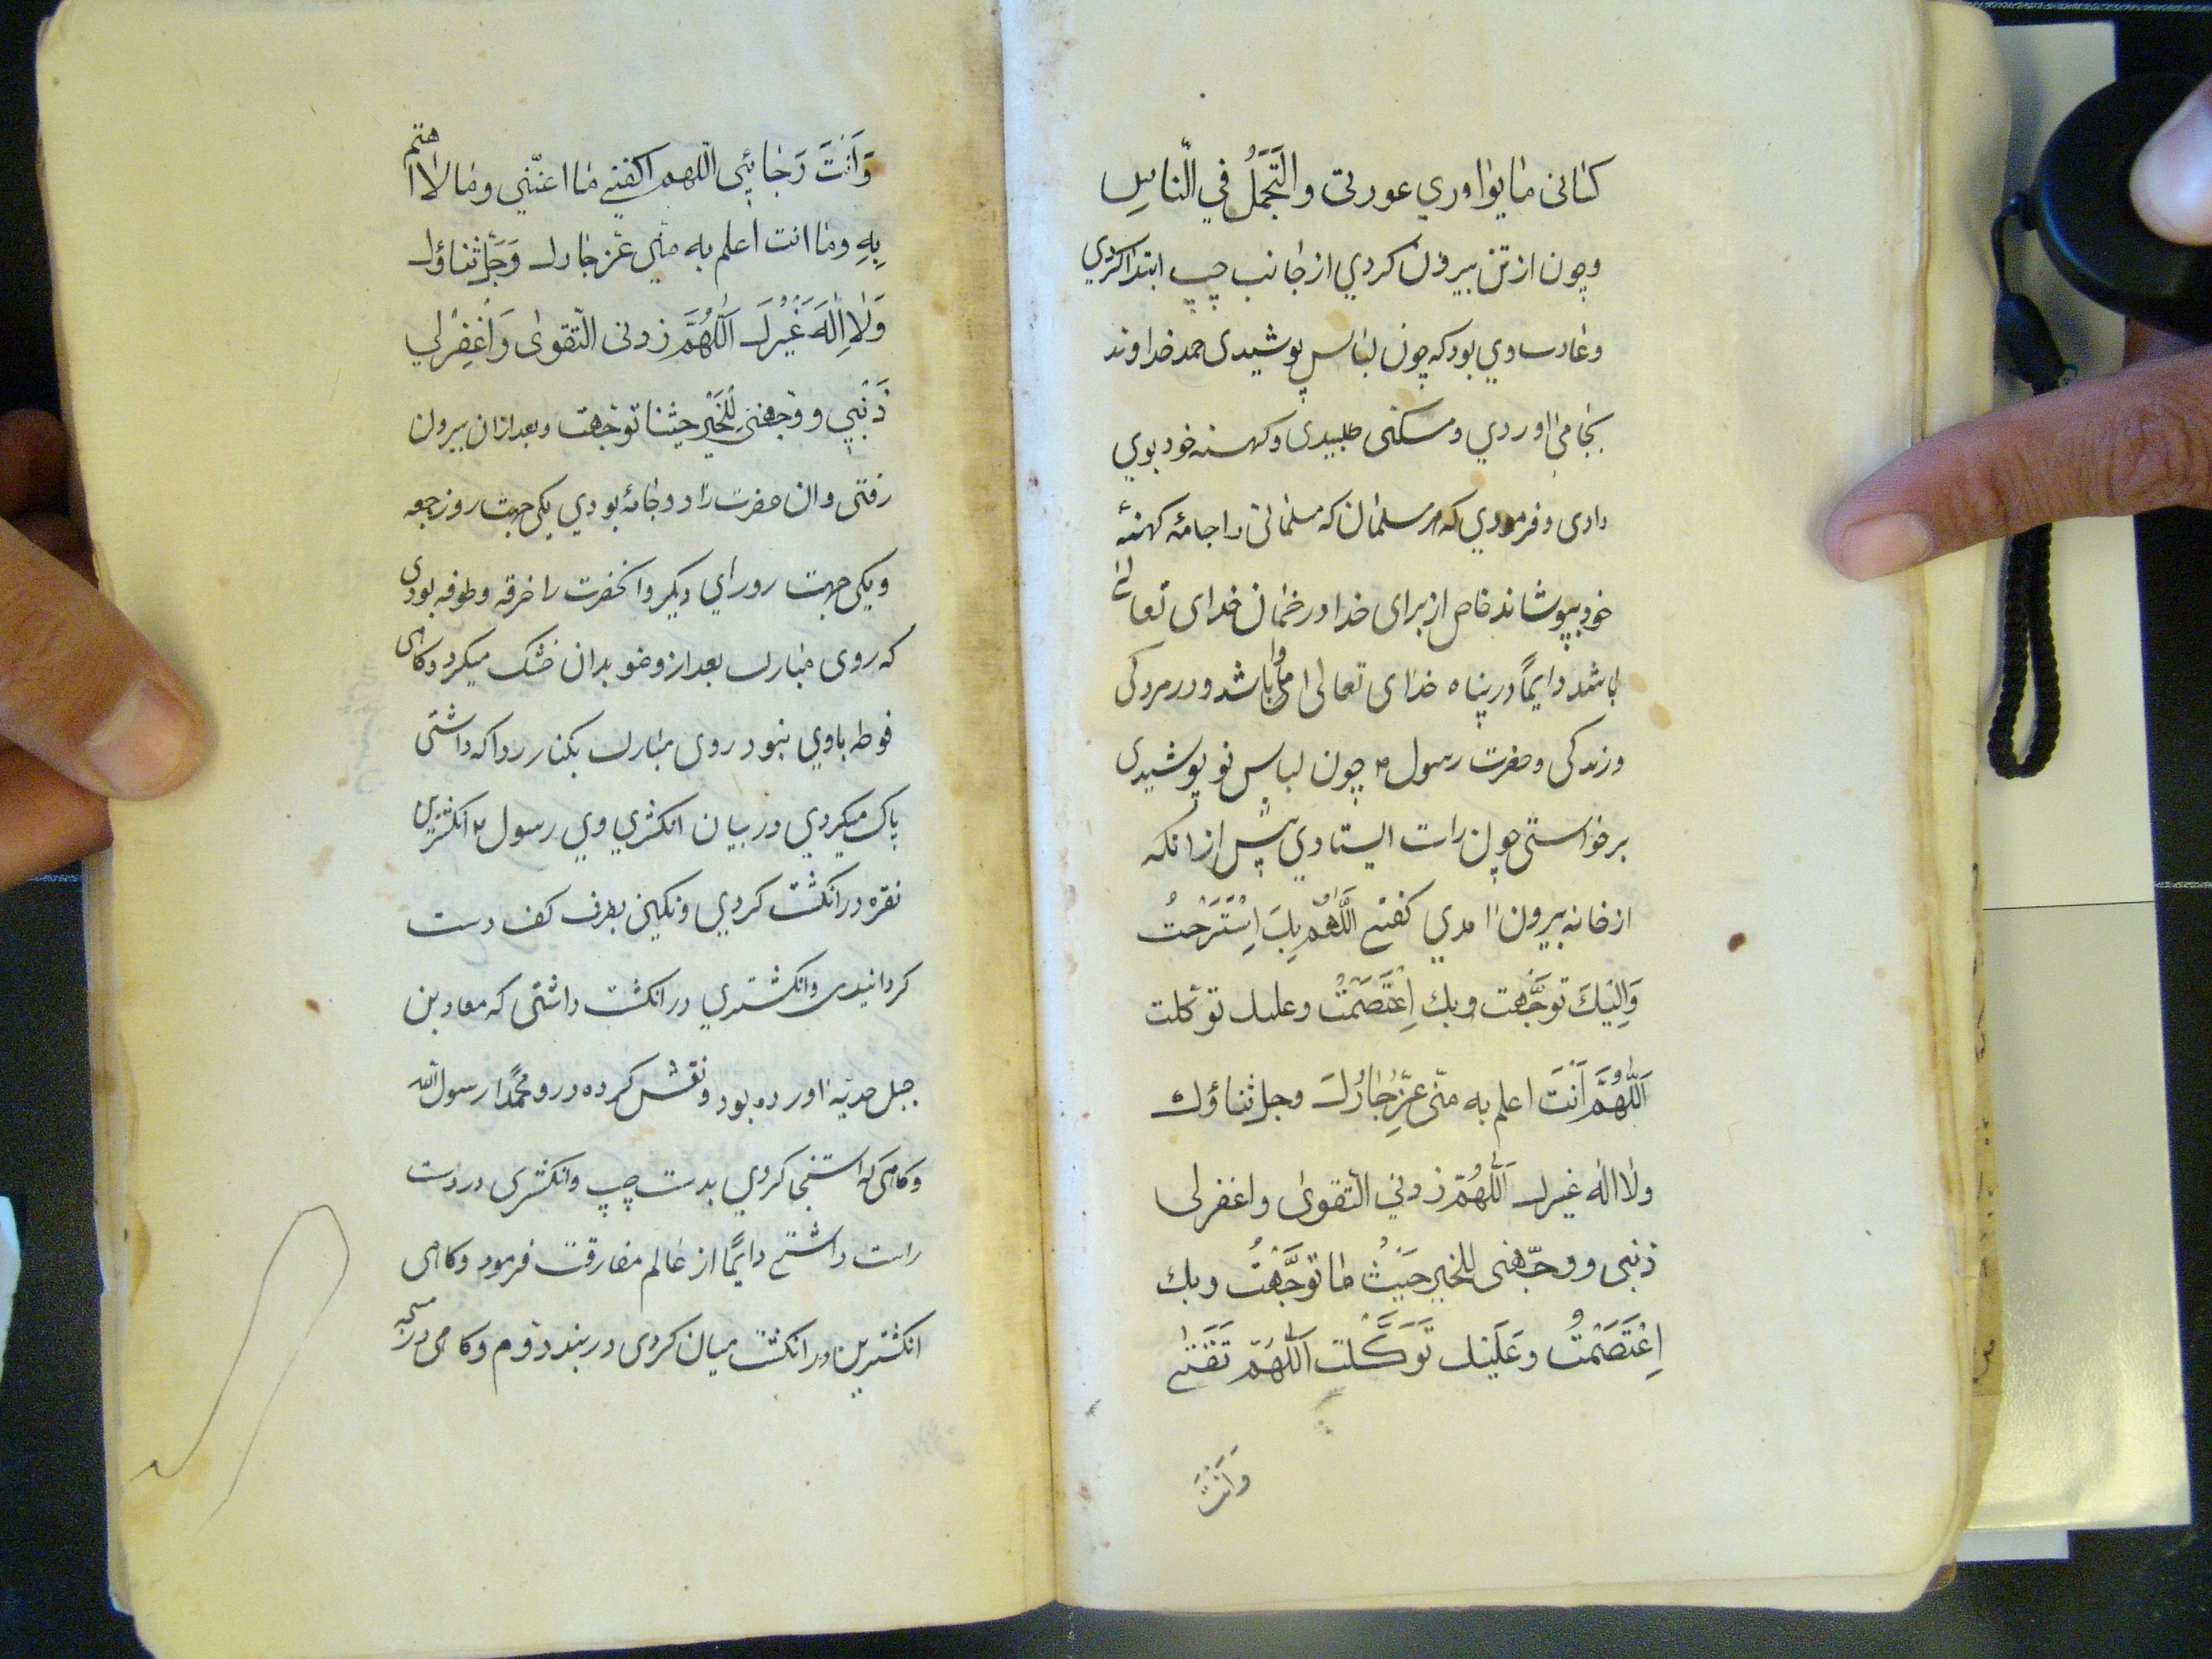 كسانى ما يوارى عورتى والتَّجَمُّل في النّاسِ
وچون از تن بيرون كردي از جانب چپ ابتدا كردي
وعادت وي بود كه چون لباس پوشيدى حمد خداوند
بجا مى اوردي ومسكنى طلبيدى وكهنه خود بوي
دادى وفرمودي كه هر مسلمان كه مسلمانى را جامۀ كهنۀ
خود بپوشاند خاص از براى خدا در ضمان خداى تعالى
باشد دايمًا در پناه خداى تعالى باشد ودر مردكى
وزندكى وحضرت رسول م چون لباس نو پوشيدى
برخواستى چون راست ايستادي پيش از انكه
از خانه بيرون امدي كفتى اللَّهُمَّ بِكَ اِنْتَشَرْتُ
وَاِلَيْكَ توجَّهت وبك اِعْتَصَمْتُ وعليك توكلت
اَللّٰهُمَّ اَنْتَ اعلم به منّى عَزَّ جَارُكَ وجل ثناؤك
ولا اله غيرك اَللّٰهُمَّ زودني التّقوىٰ واغفر لى
ذنبى ووجّهنى للخير حَيْثُ ما توَجَّهْتُ وبك
اِعْتَصَمْتُ وعَلَيْك تَوَكَّلْت اَللّٰهُمَّ ثِقَتى
وَاَنْتَ
وَاَنْتَ رَجَائِي اللّهم اكفني ما اهمّنى وما لا اهتم
بِهِ وما انت اعلم به منّي عَزّ جارك وَجَلّ ثناؤك
وَلَا اِلٰهَ غَيْرُكَ اَللّٰهُمَّ زودنى التّقوىٰ وَاغْفِرْلي
ذَنْبي ووَجهْني لِلْخَيْرِ حيثما توجهت وبعد ازان بيرون
رفتى وان حضرت را دو جامۀ بودي يكى جهت روز جمعه
ويكى جهت روزاي ديكر وانحضرت را خرقه وطوفه بودى
كه روى مبارك بعد از وضو بدان خشك ميكرد وكاهى
فوطه باوي نبود روى مبارك بكنار ردا كه داشتى
پاك ميكردي در بيان انكشتري وي رسول م انكشترين
نقره در انكشت كردي ونكين بطرف كف دست
كردانيدى وانكشتري در انكشت داشتى كه معاد بن
جبل هديّه اورده بود ونقش كرده درو محمدًا رسول الله
وكاهى كه استنجا كردي بدست چپ وانكشترى در دست
راست داشتى دايمًا از عالم مفارقت فرمود وكاهى
انكشترين در انكشت ميان كردى در بند دوم وكاهى در مسبحه